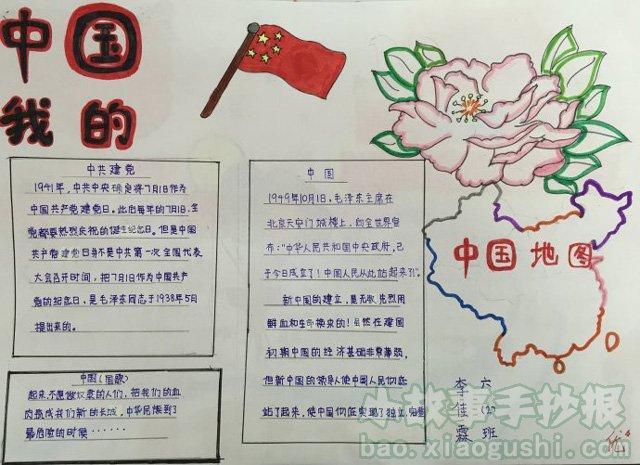 中国
我的
中共建党
1941年，中共中央决定将7月1日作为
中国共产党建党日。此后每年的7月1日，全
党都要热烈庆祝的诞生纪念日。但是中国
共产党建党日并不是中共第一次全国代表
大会召开时间，把7月1日作为中国共产
党的纪念日，是毛泽东同志于1938年5月
提出来的。
中国(国歌)
起来不愿做奴隶的人们，把我们的血
肉筑成我们新的长城，中华民族到了
最危险的时候……
中国
1949年10月1日，毛泽东主席在
北京天安门城楼上，向全世界宣
布："中华人民共和国中央政府，已
于今日成立了！中国人民从此站起来了"。
新中国的建立，是无数先烈用
鲜血和生命换来的！虽然在建国
初期中国的经济基础非常薄弱，
但新中国的领导人使中国人民彻底
站了起来，使中国彻底实现了独立
中国地图
六(2)班
李佳霖
优
小故事手抄报
bao.xiaogushi.com